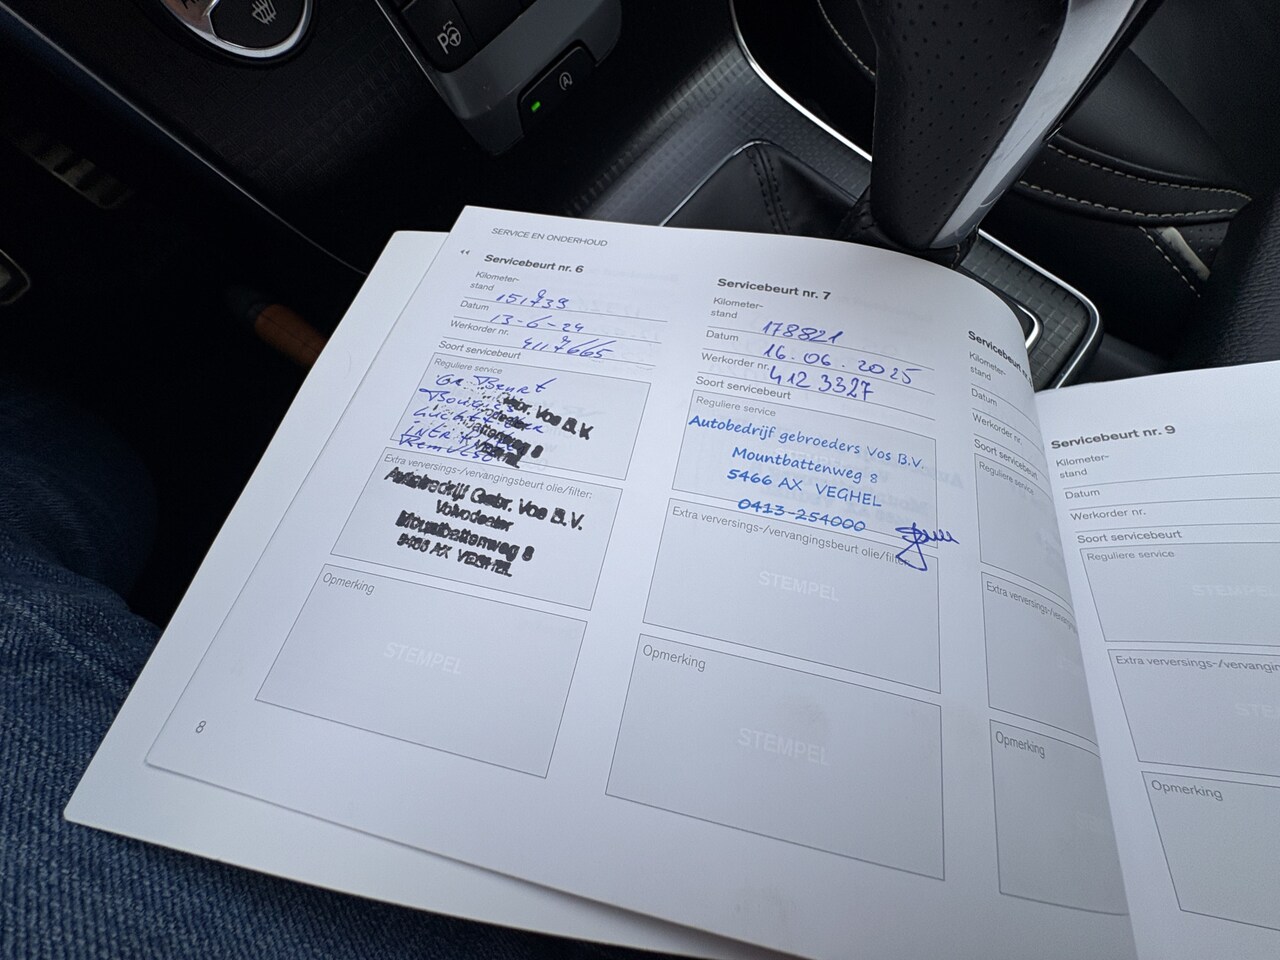 SERVICE EN ONDERHOUD
Servicebeurt nr. 6
Kilometer-
stand
151739
Datum
13-6-24
Werkorder nr.
4117665
Soort servicebeurt
Reguliere service
GR. Beurt
Bougies
Extra verversings-/vervangingsbeurt olie/filter:
Autobedrijf Gebr. Vos B.V.
Volvodealer
Mountbattenweg 8
5466 AX VEGHEL
Opmerking
STEMPEL
8
Servicebeurt nr. 7
Kilometer-
stand
178821
Datum
16.06.2025
Werkorder nr.
4123327
Soort servicebeurt
Reguliere service
Autobedrijf gebroeders Vos B.V.
Mountbattenweg 8
5466 AX VEGHEL
0413-254000
Extra verversings-/vervangingsbeurt olie/filter:
STEMPEL
Opmerking
STEMPEL
Servicebeurt
Kilometer-
stand
Datum
Werkorder nr.
Soort servicebeurt
Reguliere service
Extra verversings-/vervanging
Opmerking
Servicebeurt nr. 9
Kilometer-
stand
Datum
Werkorder nr.
Soort servicebeurt
Reguliere service
STEMPEL
Extra verversings-/vervangin
STE
Opmerking